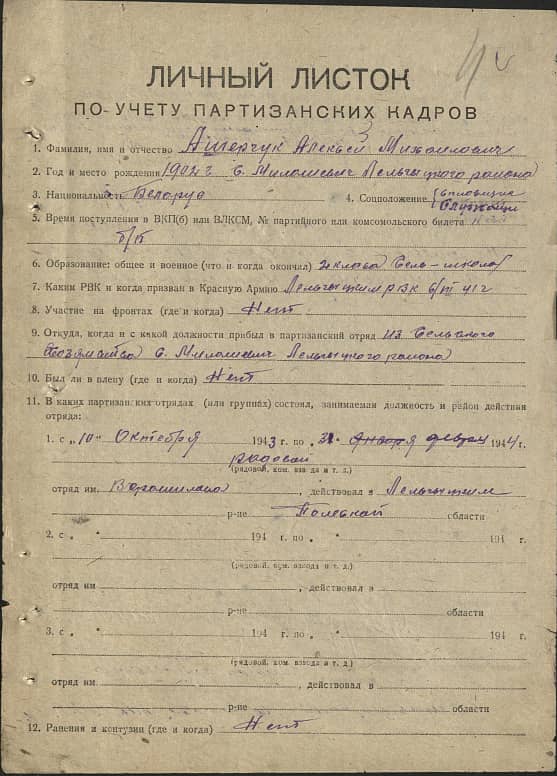 ЛИЧНЫЙ ЛИСТОК
ПО УЧЕТУ ПАРТИЗАНСКИХ КАДРОВ
1. Фамилия, имя и отчество Ашерчук Алексей Михайлович
2. Год и место рождения 1902 г с. Милошевич Лельчицкого района
3. Национальность Беларус 4. Соцположение служащи
5. Время поступления в ВКП(б) или ВЛКСМ, № партийного или комсомольского билета
б/п
6. Образование: общее и военное (что и когда окончил) 2 класса Сель-школы
7. Каким РВК и когда призван в Красную Армию Лельчицким РВК 6/VII 41 г
8. Участие на фронтах (где и когда) Нет
9. Откуда, когда и с какой должности прибыл в партизанский отряд из Сельского
хозяйства с. Милошевич Лельчицкого района
10. Был ли в плену (где и когда) Нет
11. В каких партизанских отрядах (или группах) состоял, занимаемая должность и район действия
отряда:
1. с „10" Октября 1943 г. по „31" января 1944 г.
рядовой
(рядовой, ком. взвода и т. д.)
отряд им. Ворошилова, действовал в Лельчицким
р-не Полеской области
2. с „ " 194 г. по „ " 194 г.
(рядовой, ком. взвода и т. д.)
отряд им , действовал в
р-не области
3. с „ " 194 г. по „ " 194 г.
(рядовой, ком. взвода и т. д.)
отряд им. , действовал в
р-не области
12. Ранения и контузии (где и когда) Нет